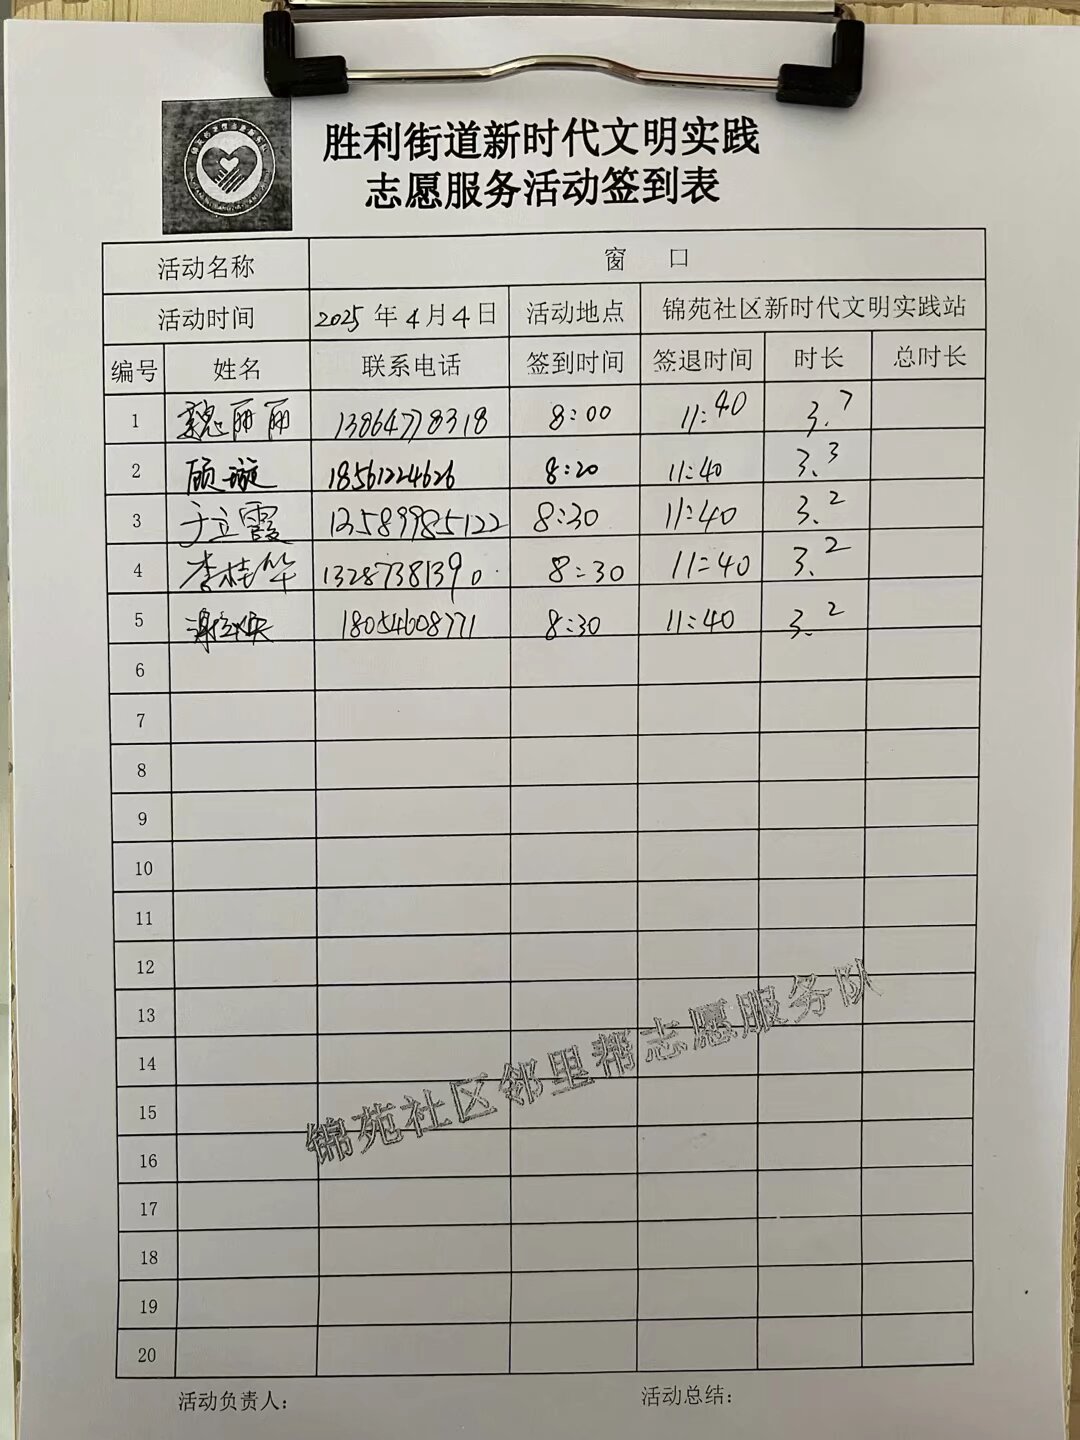 胜利街道新时代文明实践
志愿服务活动签到表
活动名称 窗 口
活动时间 2025 年 4 月 4 日 活动地点 锦苑社区新时代文明实践站
编号 姓名 联系电话 签到时间 签退时间 时长 总时长
1 魏丽丽 13864778318 8:00 11:40 3.7
2 顾璇 18561224626 8:20 11:40 3.3
3 于立霞 13589985122 8:30 11:40 3.2
4 李桂华 13287381390 8:30 11:40 3.2
5 18054608771 8:30 11:40 3.2
6
7
8
9
10
11
12
13
14
15
16
17
18
19
20
锦苑社区邻里帮志愿服务队
活动负责人: 活动总结: